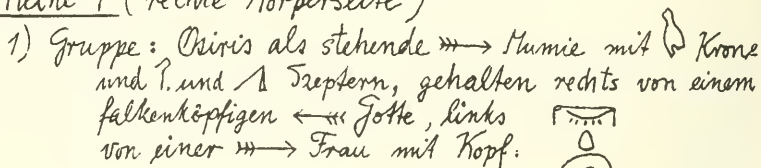 Reihe 1 (rechte Körperseite)
1) Gruppe: Osiris als stehende »»→ Mumie mit Krone
und ?. und Szeptern, gehalten rechts von einem
falkenköpfigen ←«« Gotte, links
von einer »»→ Frau mit Kopf: